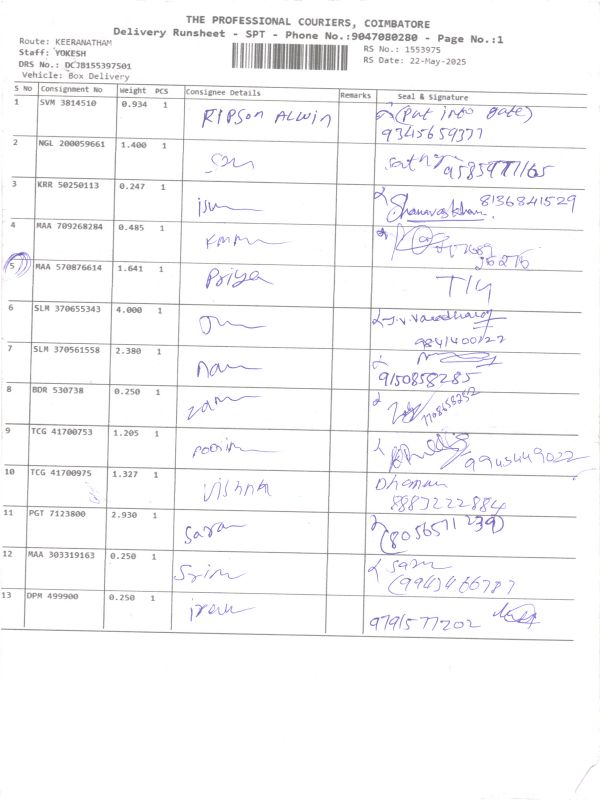 THE PROFESSIONAL COURIERS, COIMBATORE
Delivery Runsheet - SPT - Phone No.:9047080280 - Page No.:1
Route: KEERANATHAM
Staff: YOKESH
DRS No.: DCJB155397501
Vehicle: Box Delivery
RS No.: 1553975
RS Date: 22-May-2025
S No Consignment No Weight PCS Consignee Details Remarks Seal & Signature
1 SVM 3814510 0.934 1 RIPSON ALWIN (Put into gate)
9345659377
2 NGL 200059661 1.400 1
9585977165
3 KRR 50250113 0.247 1 Shanavas khan 8136841529
4 MAA 709268284 0.485 1
5 MAA 570876614 1.641 1 Priya
6 SLM 370655343 4.000 1 J.V. Varadharaj
9841400122
7 SLM 370561558 2.380 1
9150858285
8 BDR 530738 0.250 1 7708658252
9 TCG 41700753 1.205 1 9945449022
10 TCG 41700975 1.327 1 Dhaman
8883222884
11 PGT 7123800 2.930 1 Saran (8056571239)
12 MAA 303319163 0.250 1 Saran
13 DPM 499900 0.250 1
9791577202